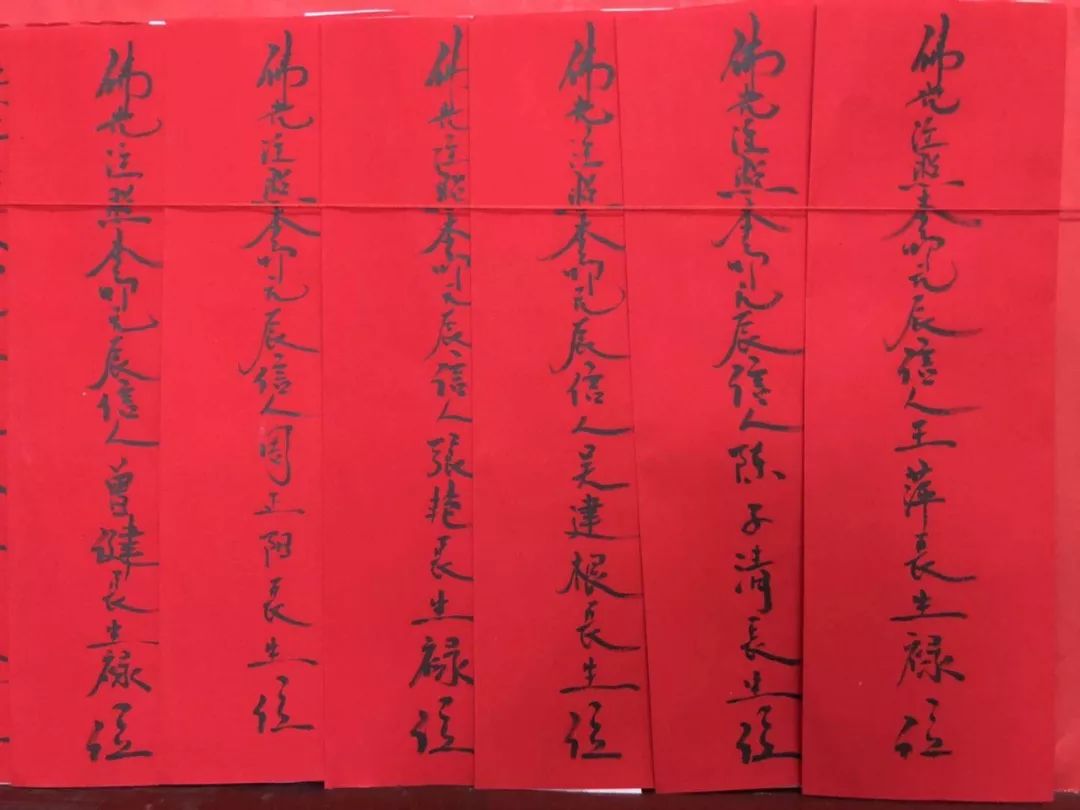 佛光注照本命元辰信人王萍長生禄位
佛光注照本命元辰信人陈子清長生位
佛光注照本命元辰信人吴建根長生位
佛光注照本命元辰信人張艳長生禄位
佛光注照本命元辰信人周正阳長生位
佛光注照本命元辰信人曾健長生禄位